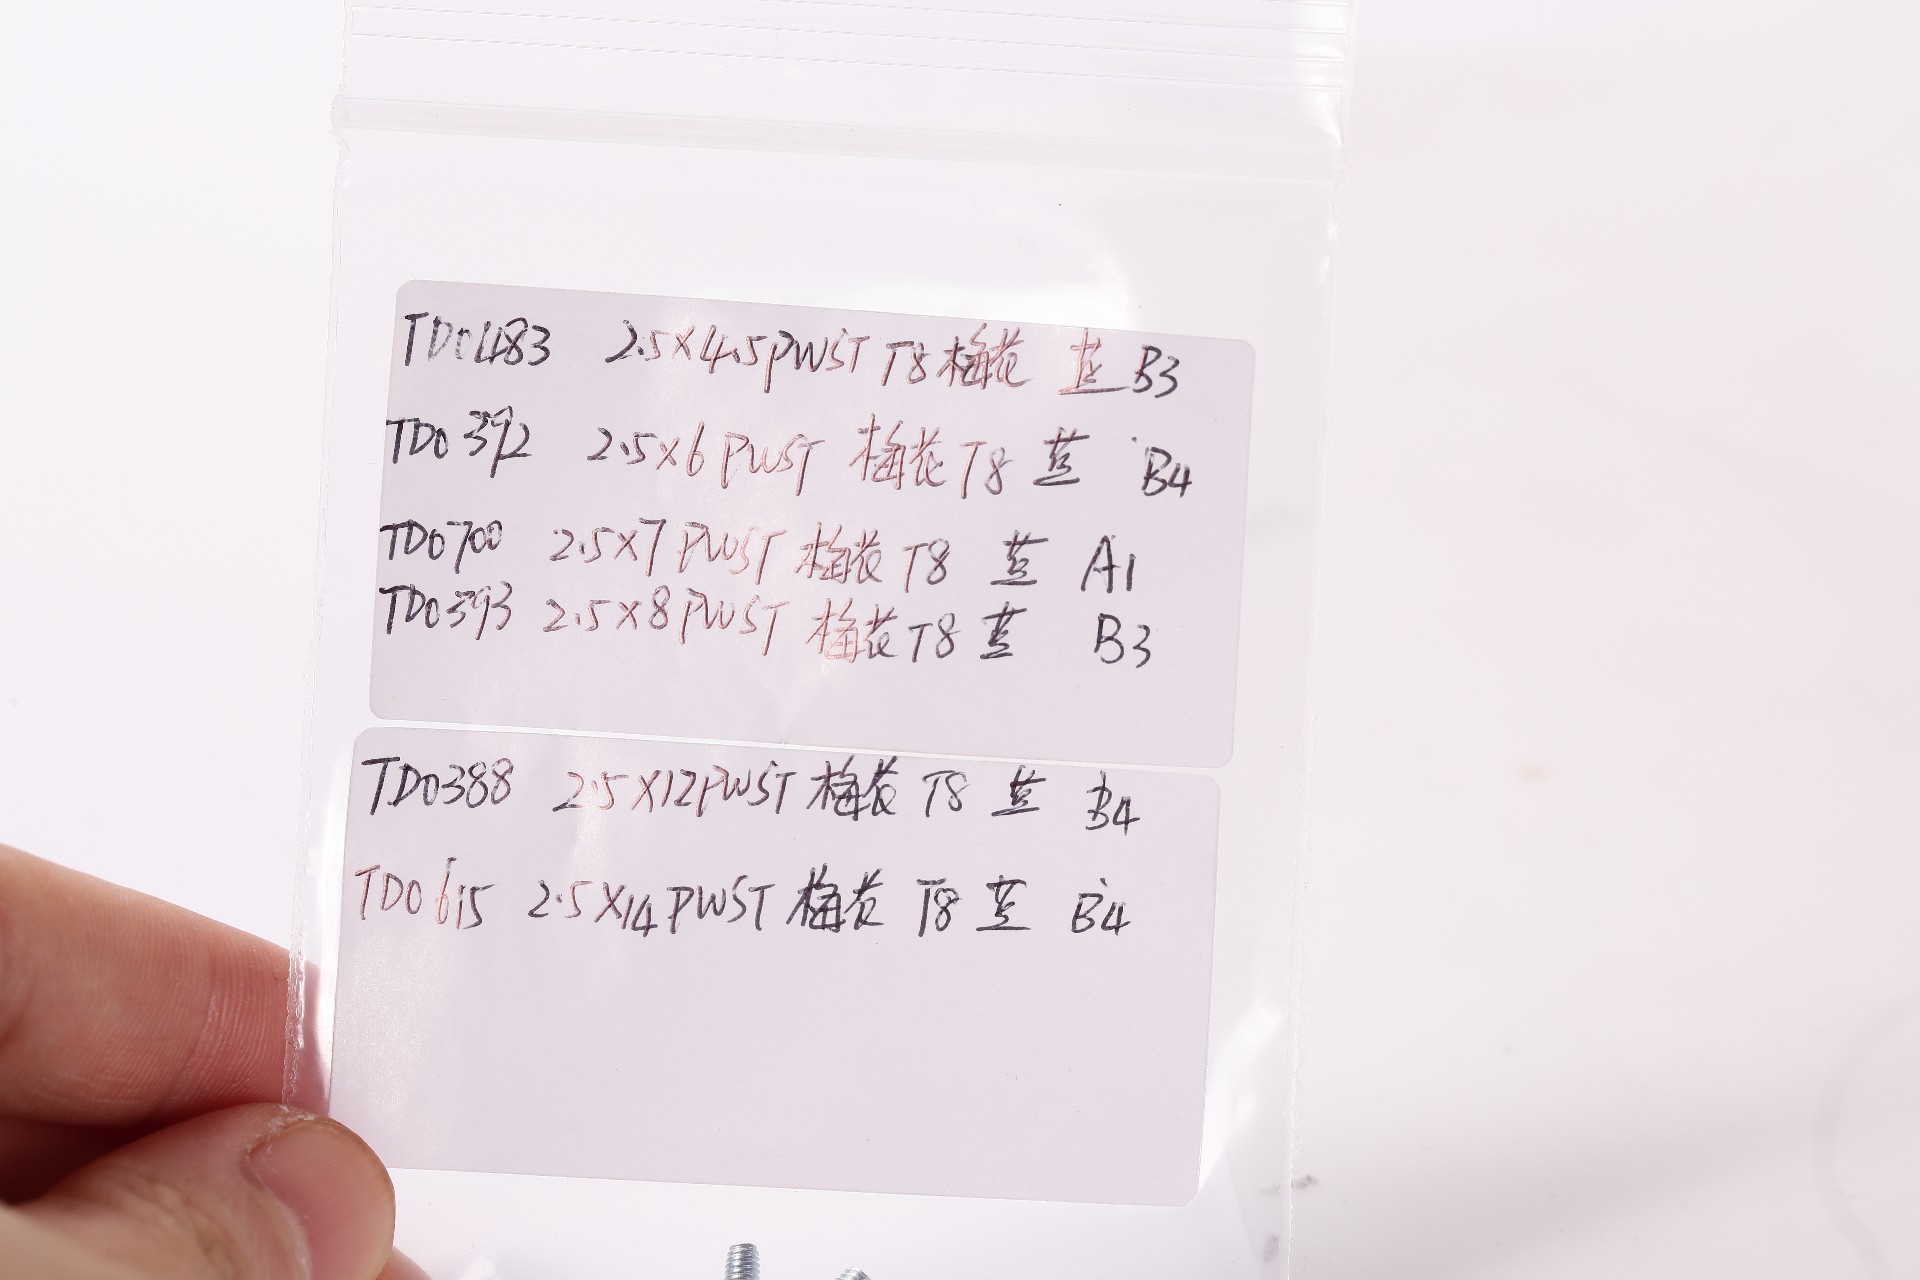 TD0483 2.5×4.5PWST T8梅花 蓝 B3
TD0392 2.5×6 PWST 梅花 T8 蓝 B4
TD0700 2.5×7 PWST 梅花 T8 蓝 A1
TD0393 2.5×8 PWST 梅花 T8 蓝 B3
TD0388 2.5×12PWST 梅花 T8 蓝 B4
TD0615 2.5×14 PWST 梅花 T8 蓝 B4